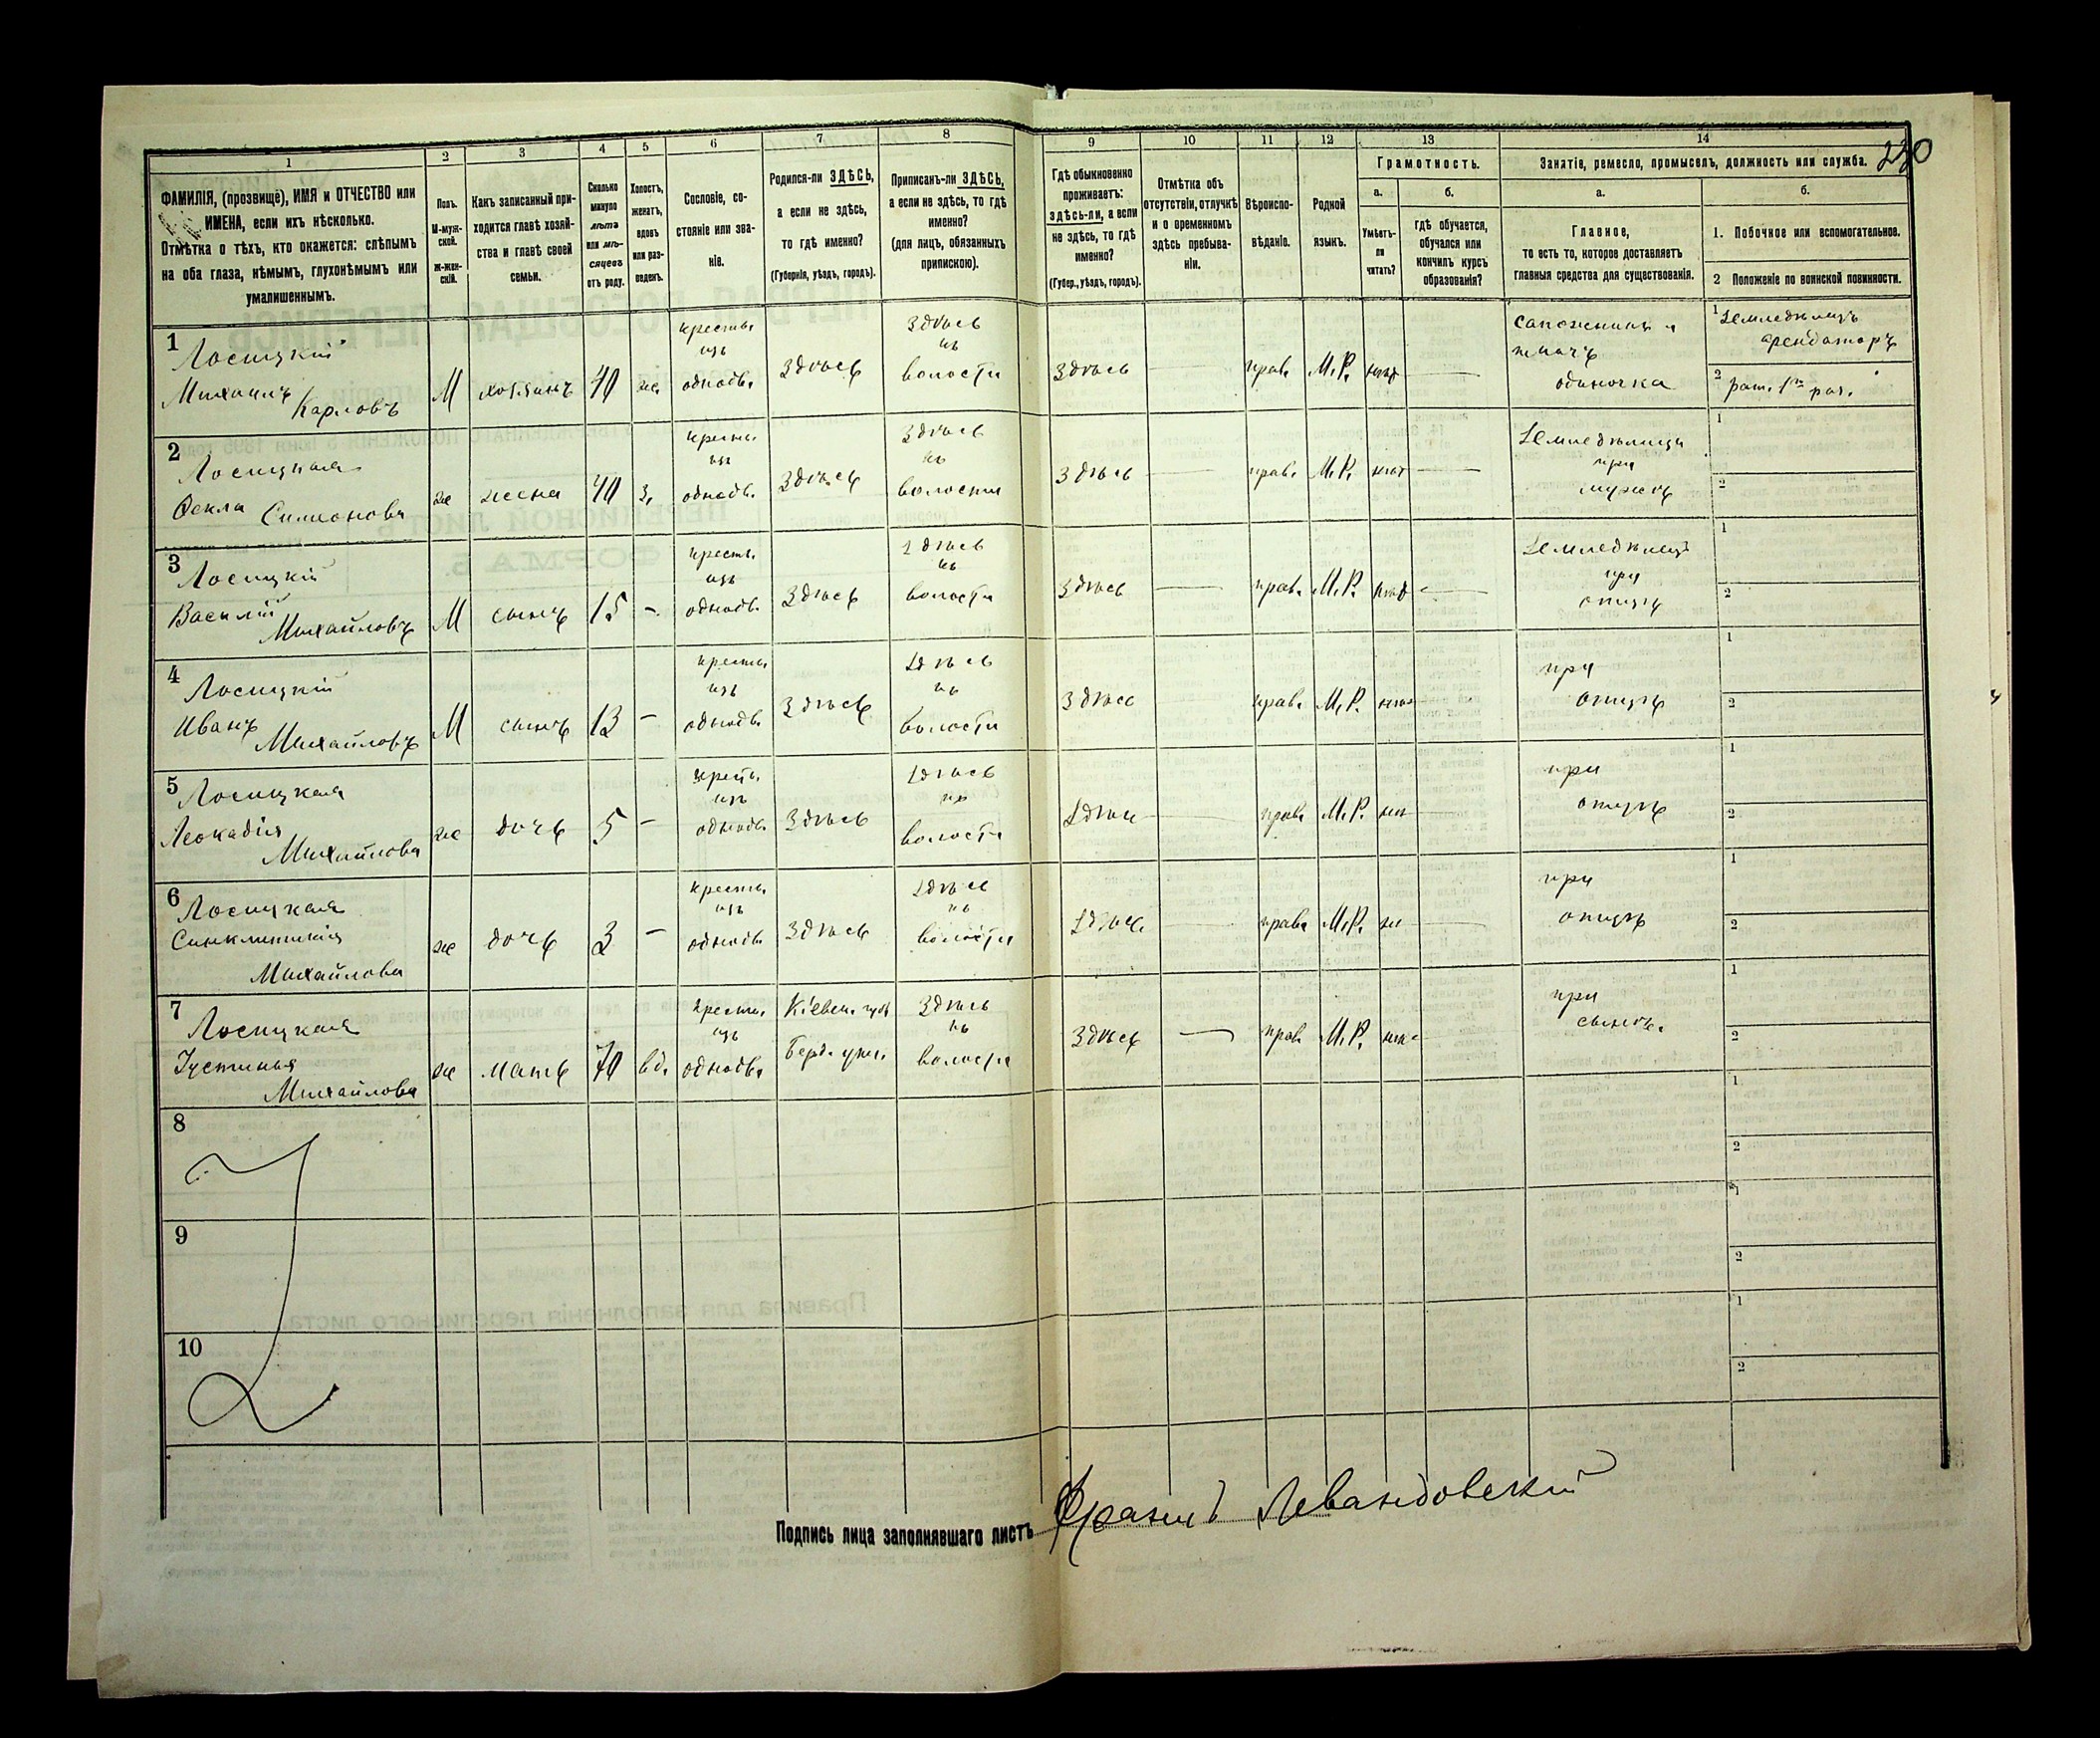 230
1 2 3 4 5 6 7 8 9 10 11 12 13 14
ФАМИЛІЯ, (прозвище), ИМЯ и ОТЧЕСТВО или
ИМЕНА, если ихъ нѣсколько.
Отмѣтка о тѣхъ, кто окажется: слѣпымъ
на оба глаза, нѣмымъ, глухонѣмымъ или
умалишеннымъ.
Полъ.
М-муж-
ской.
Ж-жен-
скій.
Какъ записанный при-
ходится главѣ хозяй-
ства и главѣ своей
семьи.
Сколько
минуло
лѣтъ
или мѣ-
сяцевъ
отъ роду.
Холостъ,
женатъ,
вдовъ
или раз-
веденъ.
Сословіе, со-
стояніе или зва-
ніе.
Родился-ли ЗДѢСЬ,
а если не здѣсь,
то гдѣ именно?
(Губернія, уѣздъ, городъ).
Приписанъ-ли ЗДѢСЬ,
а если не здѣсь, то гдѣ
именно?
(для лицъ, обязанныхъ
припискою).
Гдѣ обыкновенно
проживаетъ:
здѣсь-ли, а если
не здѣсь, то гдѣ
именно?
(Губер., уѣздъ, городъ).
Отмѣтка объ
отсутствіи, отлучкѣ
и о временномъ
здѣсь пребыва-
ніи.
Вѣроиспо-
вѣданіе.
Родной
языкъ.
Грамотность.
а.
Умѣетъ-
ли
читать?
б.
гдѣ обучается,
обучался или
кончилъ курсъ
образованія?
Занятіе, ремесло, промыселъ, должность или служба.
а.
Главное,
то есть то, которое доставляетъ
главныя средства для существованія.
б.
1. Побочное или вспомогательное.
2 Положеніе по воинской повинности.
1
Лосицкій
Михаилъ
Карловъ
М
хозяинъ
40
же.
кресть.
изъ
однодв.
Здѣсь
Здѣсь
въ
волости
Здѣсь
прав.
М. Р.
нѣт
сапожникъ и
ткачъ
одиночка
1 Земледѣлецъ
арендаторъ
2 рат. 1го раз.
2
Лосицкая
Фекла Симеонова
же
жена
40
З.
кресть.
изъ
однодв.
Здѣсь
Здѣсь
въ
волости
Здѣсь
прав.
М. Р.
нѣт
Земледѣлица
при
мужѣ
1
2
3
Лосицкій
Василій
Михайловъ
М
сынъ
15
–
кресть.
изъ
однодв.
Здѣсь
Здѣсь
въ
волости
Здѣсь
прав.
М. Р.
нѣт
Земледѣлецъ
при
отцѣ
1
2
4
Лосицкій
Иванъ
Михайловъ
М
сынъ
13
–
кресть.
изъ
однодв.
Здѣсь
Здѣсь
въ
волости
Здѣсь
прав.
М. Р.
нѣт
при
отцѣ
1
2
5
Лосицкая
Леокадія
Михайлова
же
дочь
5
–
кресть.
изъ
однодв.
Здѣсь
Здѣсь
въ
волости
Здѣсь
прав.
М. Р.
нѣт
при
отцѣ
1
2
6
Лосицкая
Синклитикія
Михайлова
же
дочь
3
–
кресть.
изъ
однодв.
Здѣсь
Здѣсь
въ
волости
Здѣсь
прав.
М. Р.
при
отцѣ
1
2
7
Лосицкая
Устинья
Михайлова
же
мать
70
вд.
кресть.
изъ
однодв.
Кіевск. губ.
Берд. уѣз.
Здѣсь
въ
волости
Здѣсь
прав.
М. Р.
нѣт
при
сынѣ.
1
2
8
1
2
9
1
2
10
1
2
Подпись лица заполнявшаго листъ Францъ Левандовскій